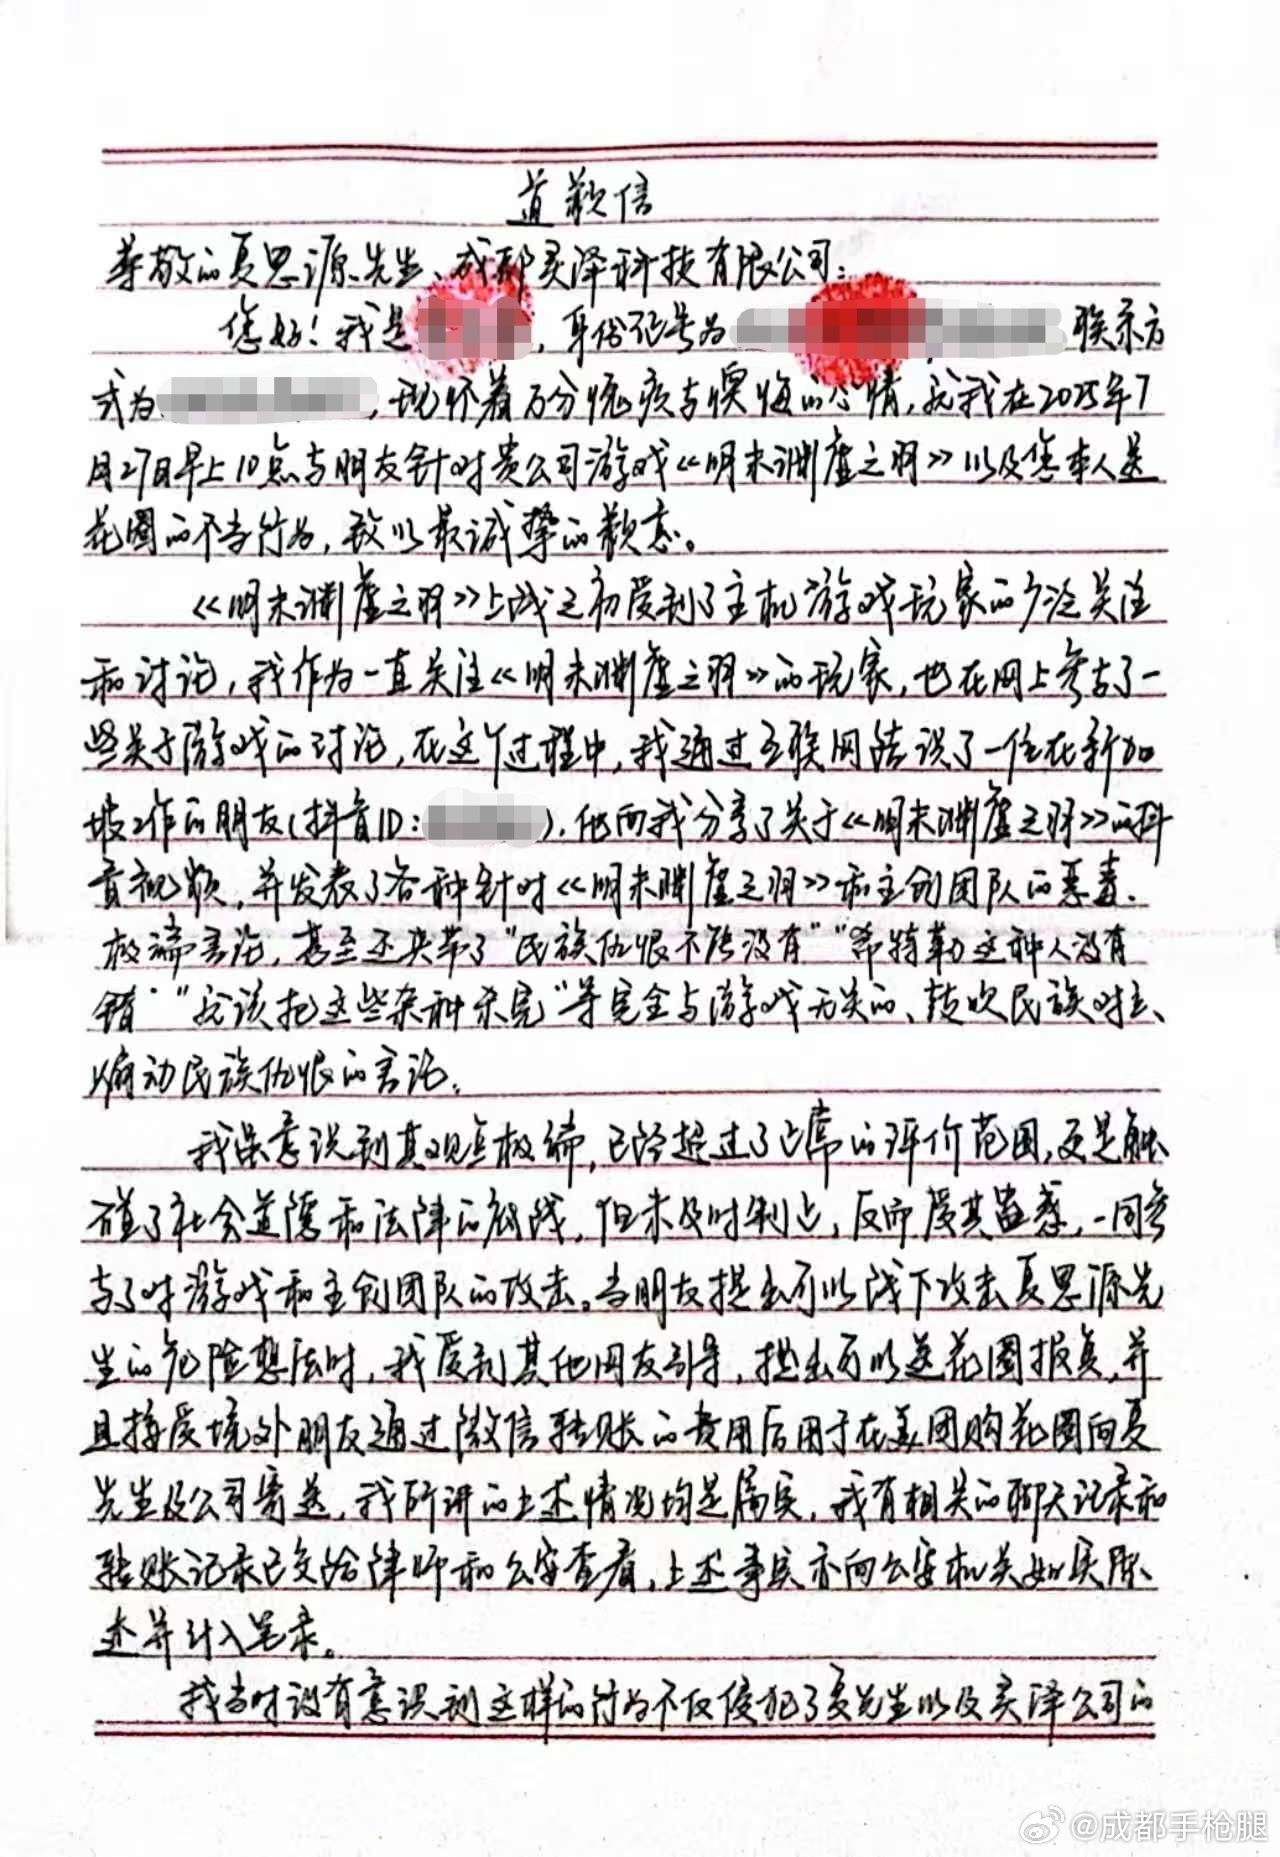 道歉信
尊敬的夏思源先生、成都灵泽科技有限公司：
您好！我是，身份证号为 联系方
式为，现怀着万分愧疚与懊悔的心情，就我在2025年7
月27日早上10点与朋友针对贵公司游戏《明末渊虚之羽》以及您本人送
花圈的不当行为，致以最诚挚的歉意。
《明末渊虚之羽》上线之初受到了主机游戏玩家的广泛关注
和讨论，我作为一直关注《明末渊虚之羽》的玩家，也在网上参与了一
些关于游戏的讨论，在这个过程中，我通过互联网结识了一位在新加
坡工作的朋友（抖音ID：），他向我分享了关于《明末渊虚之羽》的抖
音视频，并发表了各种针对《明末渊虚之羽》和主创团队的恶毒、
极端言论，甚至还夹带了“民族仇恨不能没有”“希特勒这种人没有
错”“就该把这些杂种杀完”等完全与游戏无关的、鼓吹民族对立、
煽动民族仇恨的言论。
我虽意识到其观点极端，已经超过了正常的评价范围，更是触
碰了社会道德和法律的底线，但未及时制止，反而受其蛊惑，一同参
与了对游戏和主创团队的攻击。当朋友提出可以线下攻击夏思源先
生的危险想法时，我受到其他网友引导，提出可以送花圈报复，并
且接受境外朋友通过微信转账的费用后用于在美团购花圈向夏
先生及公司寄送，我所讲的上述情况均是属实，我有相关的聊天记录和
转账记录已交给律师和公安查看，上述事实亦向公安机关如实陈
述并计入笔录。
我当时没有意识到这样的行为不仅侵犯了夏先生以及灵泽公司的
@成都手枪腿